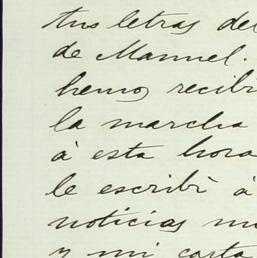 tus letras del
de Manuel.
hemos recibi
la marcha
à esta hora
le escribì à
noticias mu
y mi carta